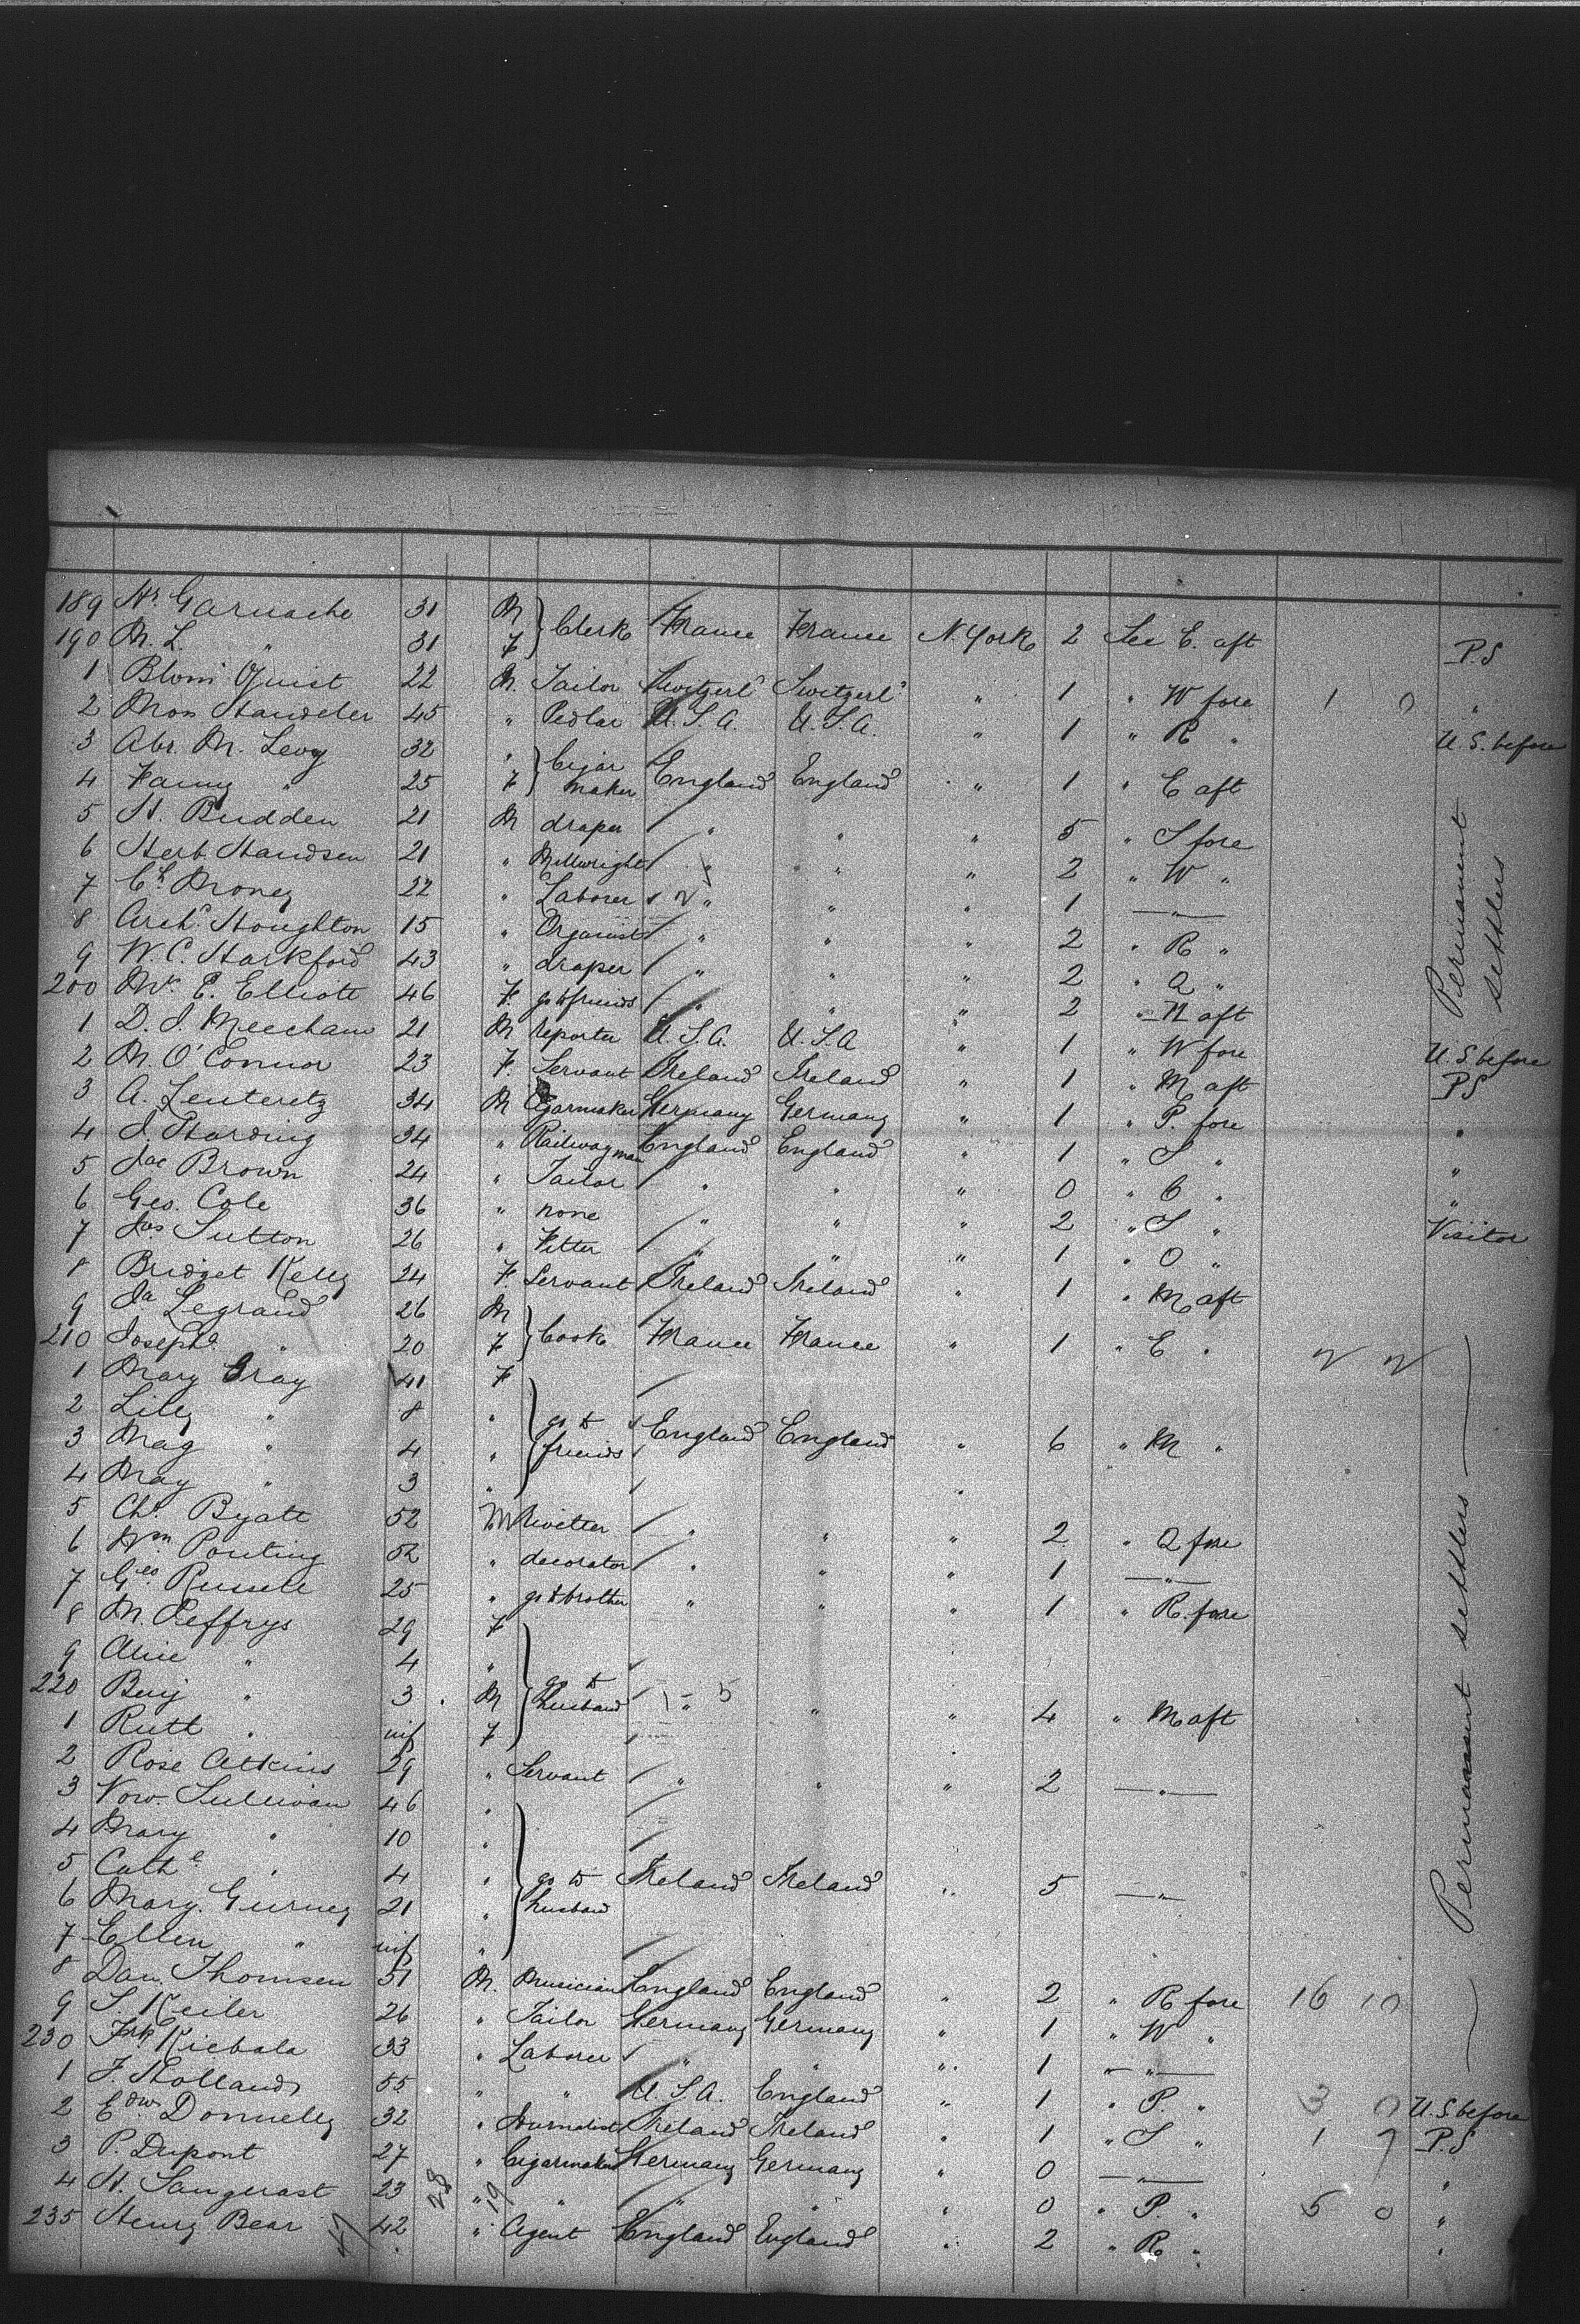 189 Hr. Garnache 31 M } Clerk France France N. York 2 See E. aft
190 M. L. " 31 F P.S
1 Blom Quist 22 M. Tailor Switzerld Switzerld " 1 " W fore 1 0 "
2 Mos 45 " Pedlar U.S.A. U.S.A. " 1 " R " U.S. before
3 Abr. M. Levy 32 " } Cigar
4 Fanny " 25 F maker England England " 1 " E aft
5 H. Budden 21 M draper " " " 5 " S fore
6 Herb. Handsen 21 " Millwright " " " 2 " W "
7 Money 22 " Laborer " " " 1 "
8 Archd. Houghton 15 " Organist " " " 2 " R "
9 W. C. Harkford 43 " draper " " " 2 " Q "
200 E. Elliott 46 F. go to friends " " " 2 " M aft
Permanent settlers
1 D. J. Meecham 21 M reporter U.S.A. U.S.A " 1 " W fore U.S. before
2 M. O'Connor 23 F. Servant Ireland Ireland " 1 " M aft PS
3 A. Lenteretz 34 M Cigarmaker Germany Germany " 1 " P. fore "
4 J. Harding 34 " Railwayman England England " 1 " S " "
5 Jac Brown 24 " Tailor " " " 0 " " "
6 Geo. Cole 36 " none " " " 2 " S " Visitor
7 Jas Sutton 26 " Fitter " " " 1 " O "
8 Bridget Kelly 24 F. Servant Ireland Ireland " 1 " M aft
9 Ja Legrand 26 M } Cook France France " 1 " E "
210 Josepha " 20 F
1 Mary Gray 41 F
2 Lily " 8 " } go to England England " 6 " M "
3 Mag " 4 " friends
4 May " 3 "
5 Chs. Byatt 52 M Rivetter " " " 2 " Q fore
6 Wm Ponting 52 " decorator " " " 1 "
7 Geo Russell 25 " go to brother " " " 1 " R. fore
8 M. Jeffrys 29 F
9 Alice " 4 " } go to
220 Benj " 3 M husband " " " 4 " M aft
1 Ruth " inf F
2 Rose Atkins 29 " Servant " " " 2 "
3 Sullivan 46 "
4 Mary " 10 "
5 Cathe " 4 " } go to Ireland Ireland " 5 "
6 Mary Gurney 21 " husband
7 Ellen " inf "
Permanent settlers
8 Dan. Thomsen 31 M. Musician England England " 2 " R fore 16 10
9 S. Keiler 26 " Tailor Germany Germany " 1 " W "
230 Kiebala 33 " Laborer " " " 1 "
1 J. Holland 55 " " U.S.A. England " 1 " P. " 3 0 U.S. before
2 Edw Donnelly 32 " Journalist Ireland Ireland " 1 " S " 1 7 P.S
3 P. Dupont 27 " Cigarmaker Germany Germany " 0 " "
4 H. 23 " " " " " 0 " P. " 5 0 "
235 Henry Bear 42 " Agent England England " 2 " R "
47 28 19